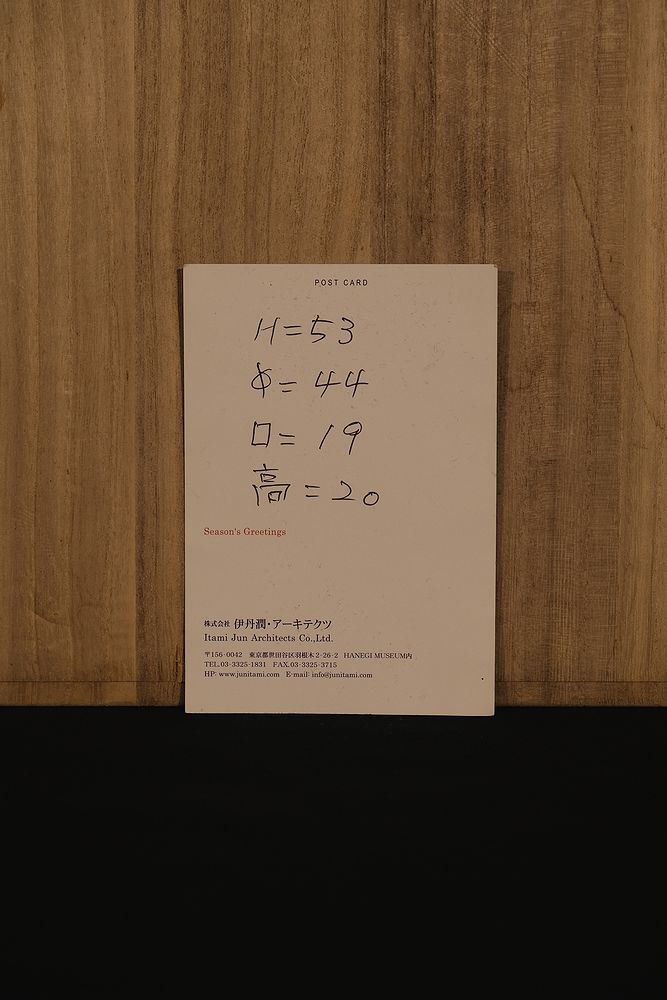 POST CARD
H=53
Φ=44
口=19
高=20
Season's Greetings
株式会社 伊丹潤・アーキテクツ
Itami Jun Architects Co.,Ltd.
〒156-0042 東京都世田谷区羽根木2-26-2 HANEGI MUSEUM内
TEL.03-3325-1831 FAX.03-3325-3715
HP: www.junitami.com E-mail: info@junitami.com